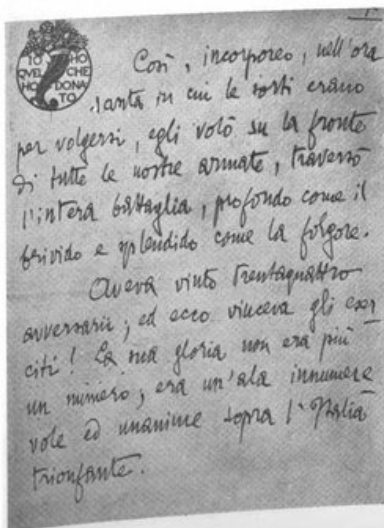 IO HO
QUEL CHE
HO DONA
TO
Così, incorporeo, nell'ora
santa in cui le sorti erano
per volgersi, egli volò su la fronte
di tutte le nostre armate, traversò
l'intera battaglia, profondo come il
brivido e splendido come la folgore.
Aveva vinto trentaquattro
avversarii; ed ecco vinceva gli eser
citi! La sua gloria non era più
un numero; era un'ala innumere
vole ed unanime sopra l'Italia
trionfante.